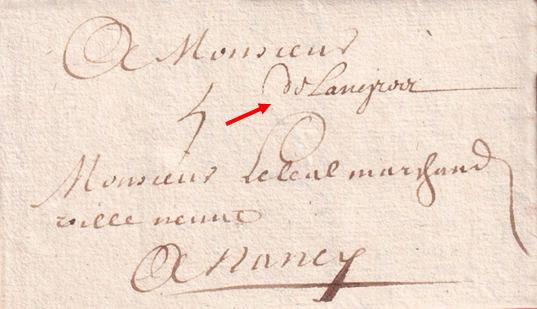 A Monsieur
de Langres
4
Monsieur Leleal marchand
ville neuve
A Nancy